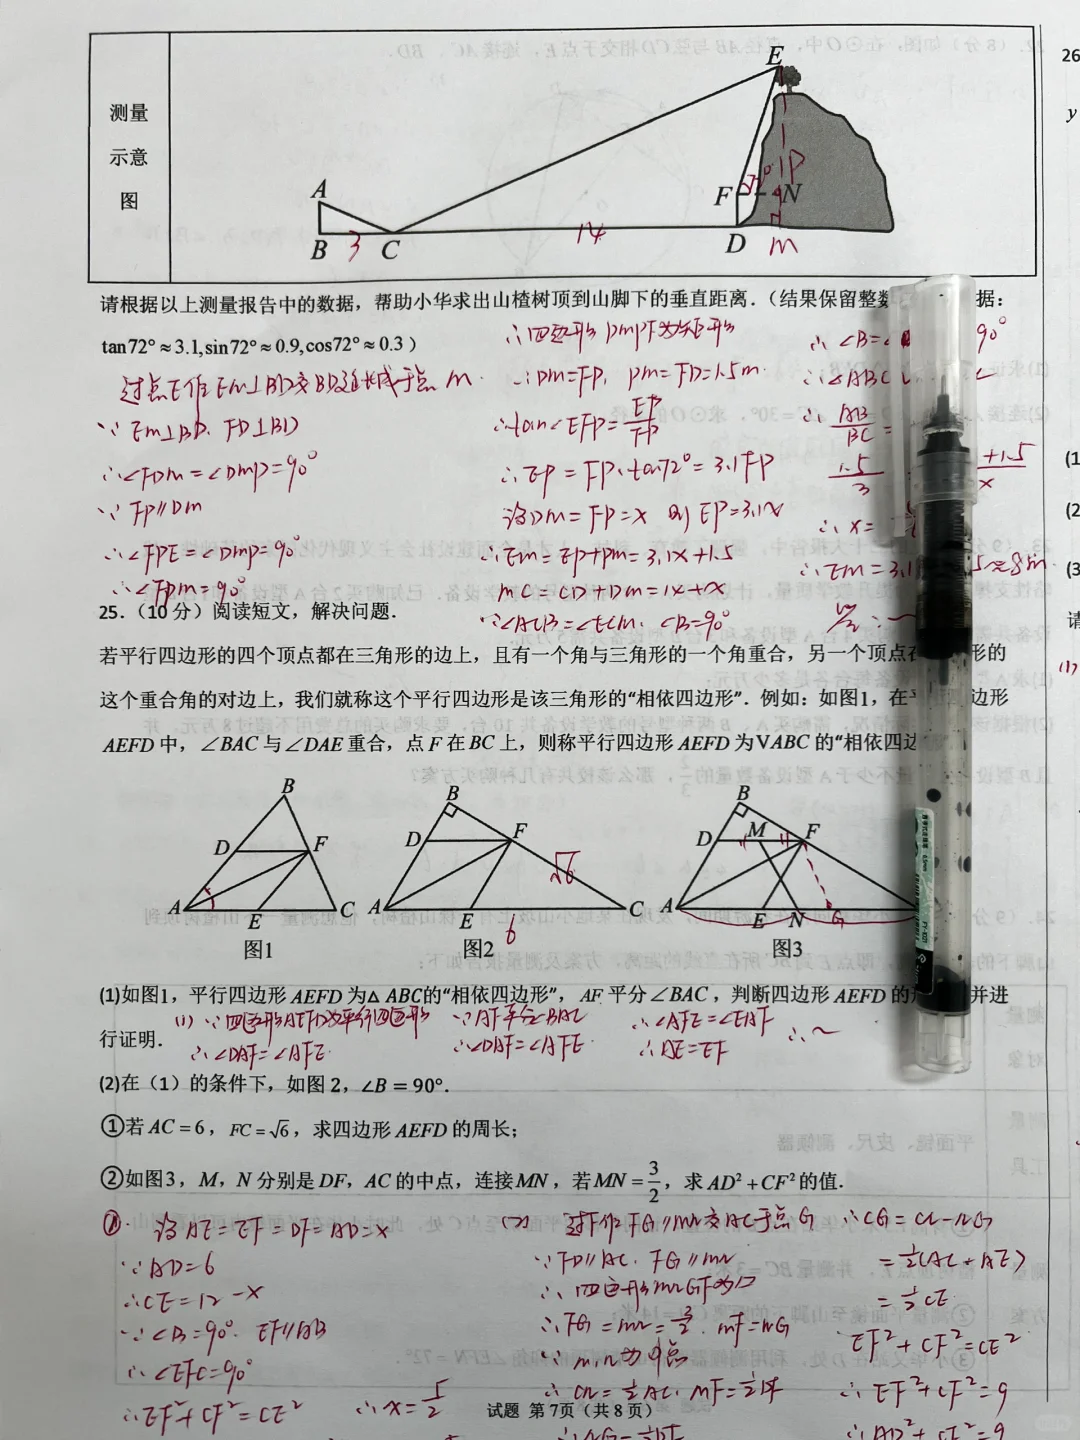 测量
示意
图
A
B
3
C
14
E
F
72°
N
P
D
M
请根据以上测量报告中的数据，帮助小华求出山楂树顶到山脚下的垂直距离．（结果保留整数
据：
tan72°≈3.1,sin72°≈0.9,cos72°≈0.3）
过点E作EM⊥BD交BD延长线于点M
∵EM⊥BD、FD⊥BD
∴∠FDM=∠DMP=90°
∵FP∥DM
∴∠FPE=∠DMP=90°
∴∠FPM=90°
∴四边形DMPF为矩形
∴DM=FP，PM=FD=1.5m
∴tan∠EFP=EP/FP
∴EP=FP·tan72°=3.1FP
设DM=FP=x 则EP=3.1x
∴EM=EP+PM=3.1x+1.5
MC=CD+DM=14+x
∵∠ACB=∠ECM，∠B=90°
∴∠B=∠
90°
∴△ABC
∴AB/BC=
1.5/3
+1.5/x
∴x=
∴EM=3.1
5≈8m
答：～
25.（10分）阅读短文，解决问题．
若平行四边形的四个顶点都在三角形的边上，且有一个角与三角形的一个角重合，另一个顶点在
形的
这个重合角的对边上，我们就称这个平行四边形是该三角形的“相依四边形”．例如：如图1，在平
边形
AEFD中，∠BAC与∠DAE重合，点F在BC上，则称平行四边形AEFD为∨ABC的“相依四边
B
D
F
A
E
C
图1
B
D
F
√6
A
E
6
C
图2
B
D
M
F
A
E
N
G
图3
(1)如图1，平行四边形AEFD为△ABC的“相依四边形”，AF平分∠BAC，判断四边形AEFD的
并进
行证明．
(1)∵四边形AEFD为平行四边形
∴∠DAF=∠AFE
∵AF平分∠BAC
∴∠DAF=∠AFE
∴∠AFE=∠EAF
∴AE=EF
∴～
(2)在（1）的条件下，如图2，∠B=90°．
①若AC=6，FC=√6，求四边形AEFD的周长；
②如图3，M，N分别是DF，AC的中点，连接MN，若MN=3/2，求AD²+CF²的值．
① 设AE=EF=DF=AD=x
∵AD=6
∴CE=12-x
∵∠B=90°．EF∥AB
∴∠EFC=90°
∴EF²+CF²=CE²
∴x=5/2
(2) 过F作FG∥MN交AC于点G
∵FD∥AC．FG∥MN
∴四边形MNGF为▱
∴FG=MN=3/2．MF=NG
∵M、N为中点
∴CN=1/2AC，MF=1/2DF
∴CG=CN-NG
=1/2(AC-AE)
=1/2CE
EF²+CF²=CE²
∴EF²+CF²=9
∴AD²+CF²=9
试题 第7页（共8页）
26
y
(1
(2
(3
请
(1)